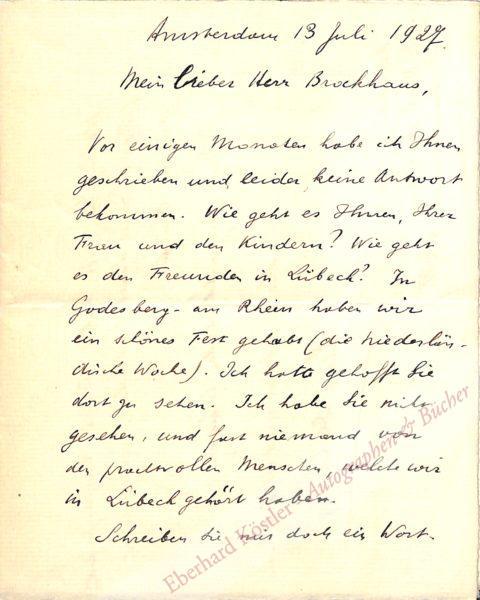 Amsterdam 13 Juli 1927.
Mein lieber Herr Brockhaus,
Vor einigen Monaten habe ich Ihnen
geschrieben und leider keine Antwort
bekommen. Wie geht es Ihnen, Ihrer
Frau und den Kindern? Wie geht
es den Freunden in Lübeck? In
Godesberg-am Rhein haben wir
ein schönes Fest gehabt (die Niederlän-
dische Woche). Ich hatte gehofft Sie
dort zu sehen. Ich habe Sie nicht
gesehen, und fast niemand von
den prachtvollen Menschen, welche wir
in Lübeck gehört haben.
Schreiben Sie mir doch ein Wort.
Eberhard Köstler Autographen & Bücher